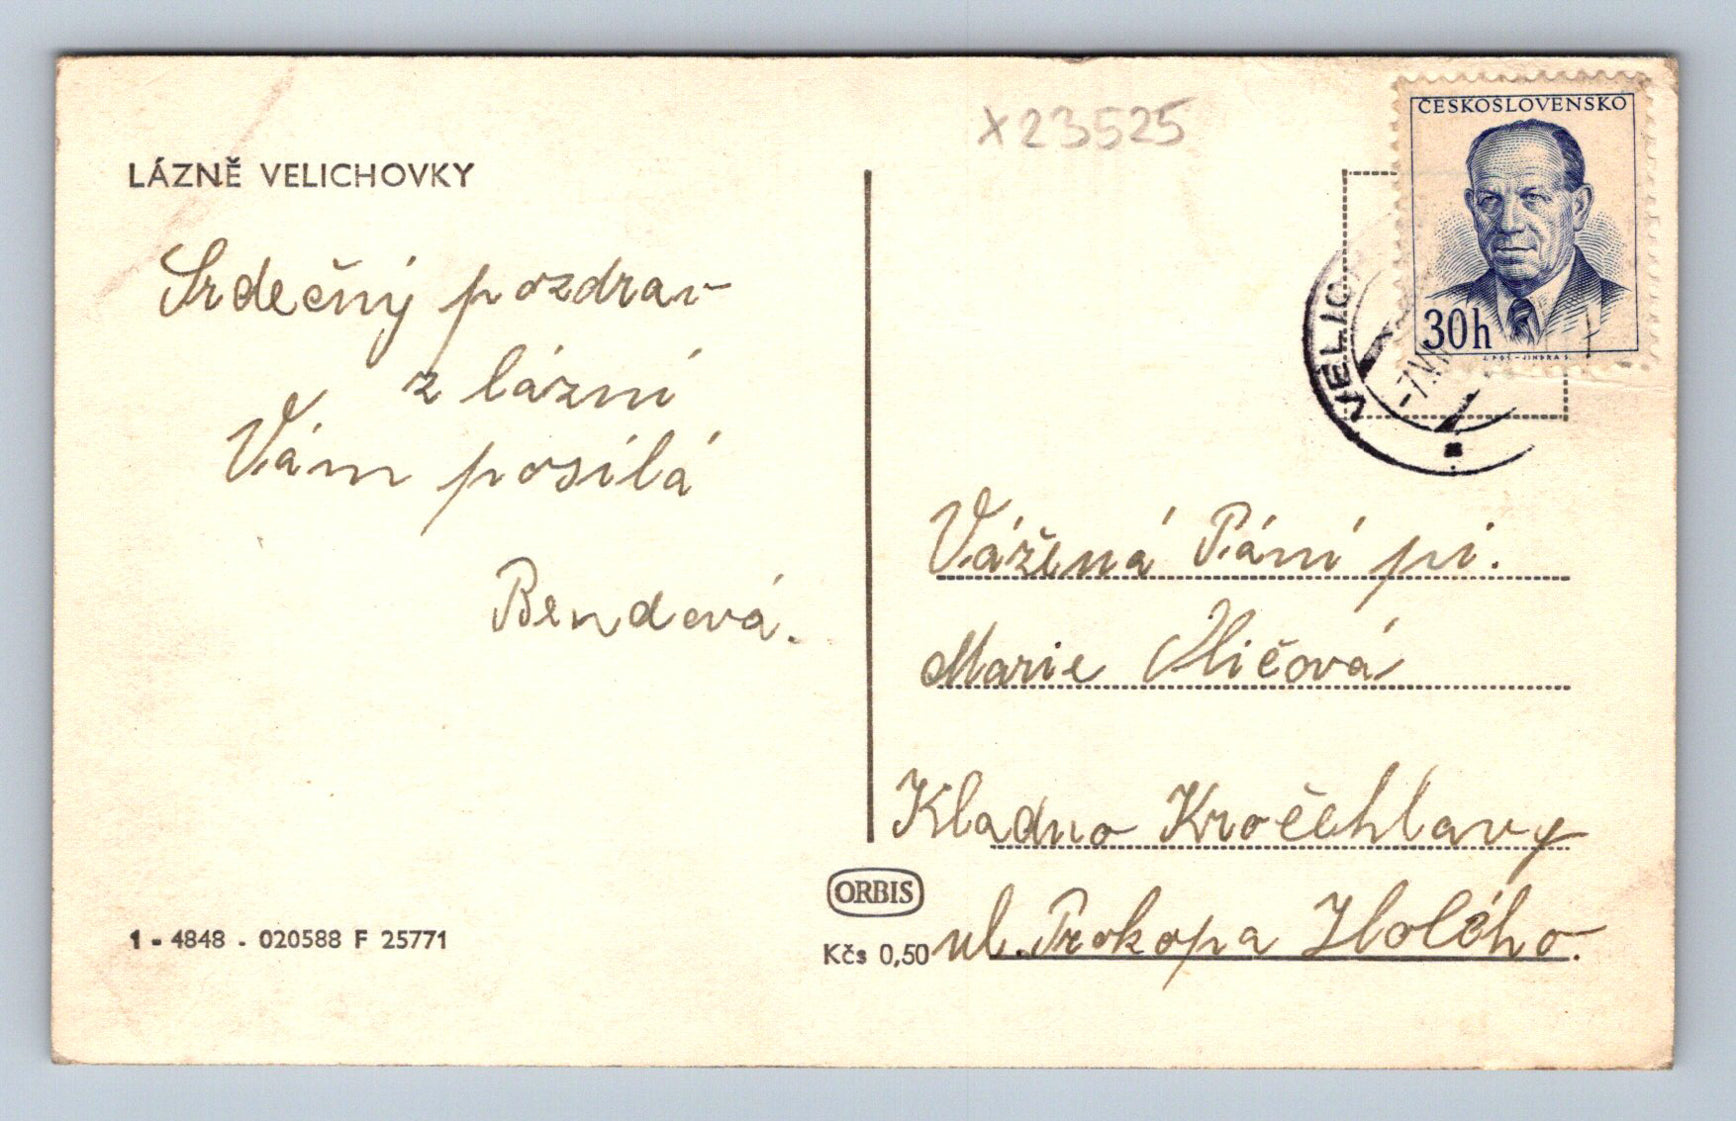 x23525
ČESKOSLOVENSKO
30h
J. POŠ - JINDRA S.
VELIC
-7.VI
LÁZNĚ VELICHOVKY
Srdečný pozdrav
z lázní
Vám posílá
Bendová.
1 - 4848 - 020588 F 25771
Vážená Pání pí.
Marie
Kladno Kročehlavy
ORBIS
Kčs 0,50
ul. Prokopa Holého.